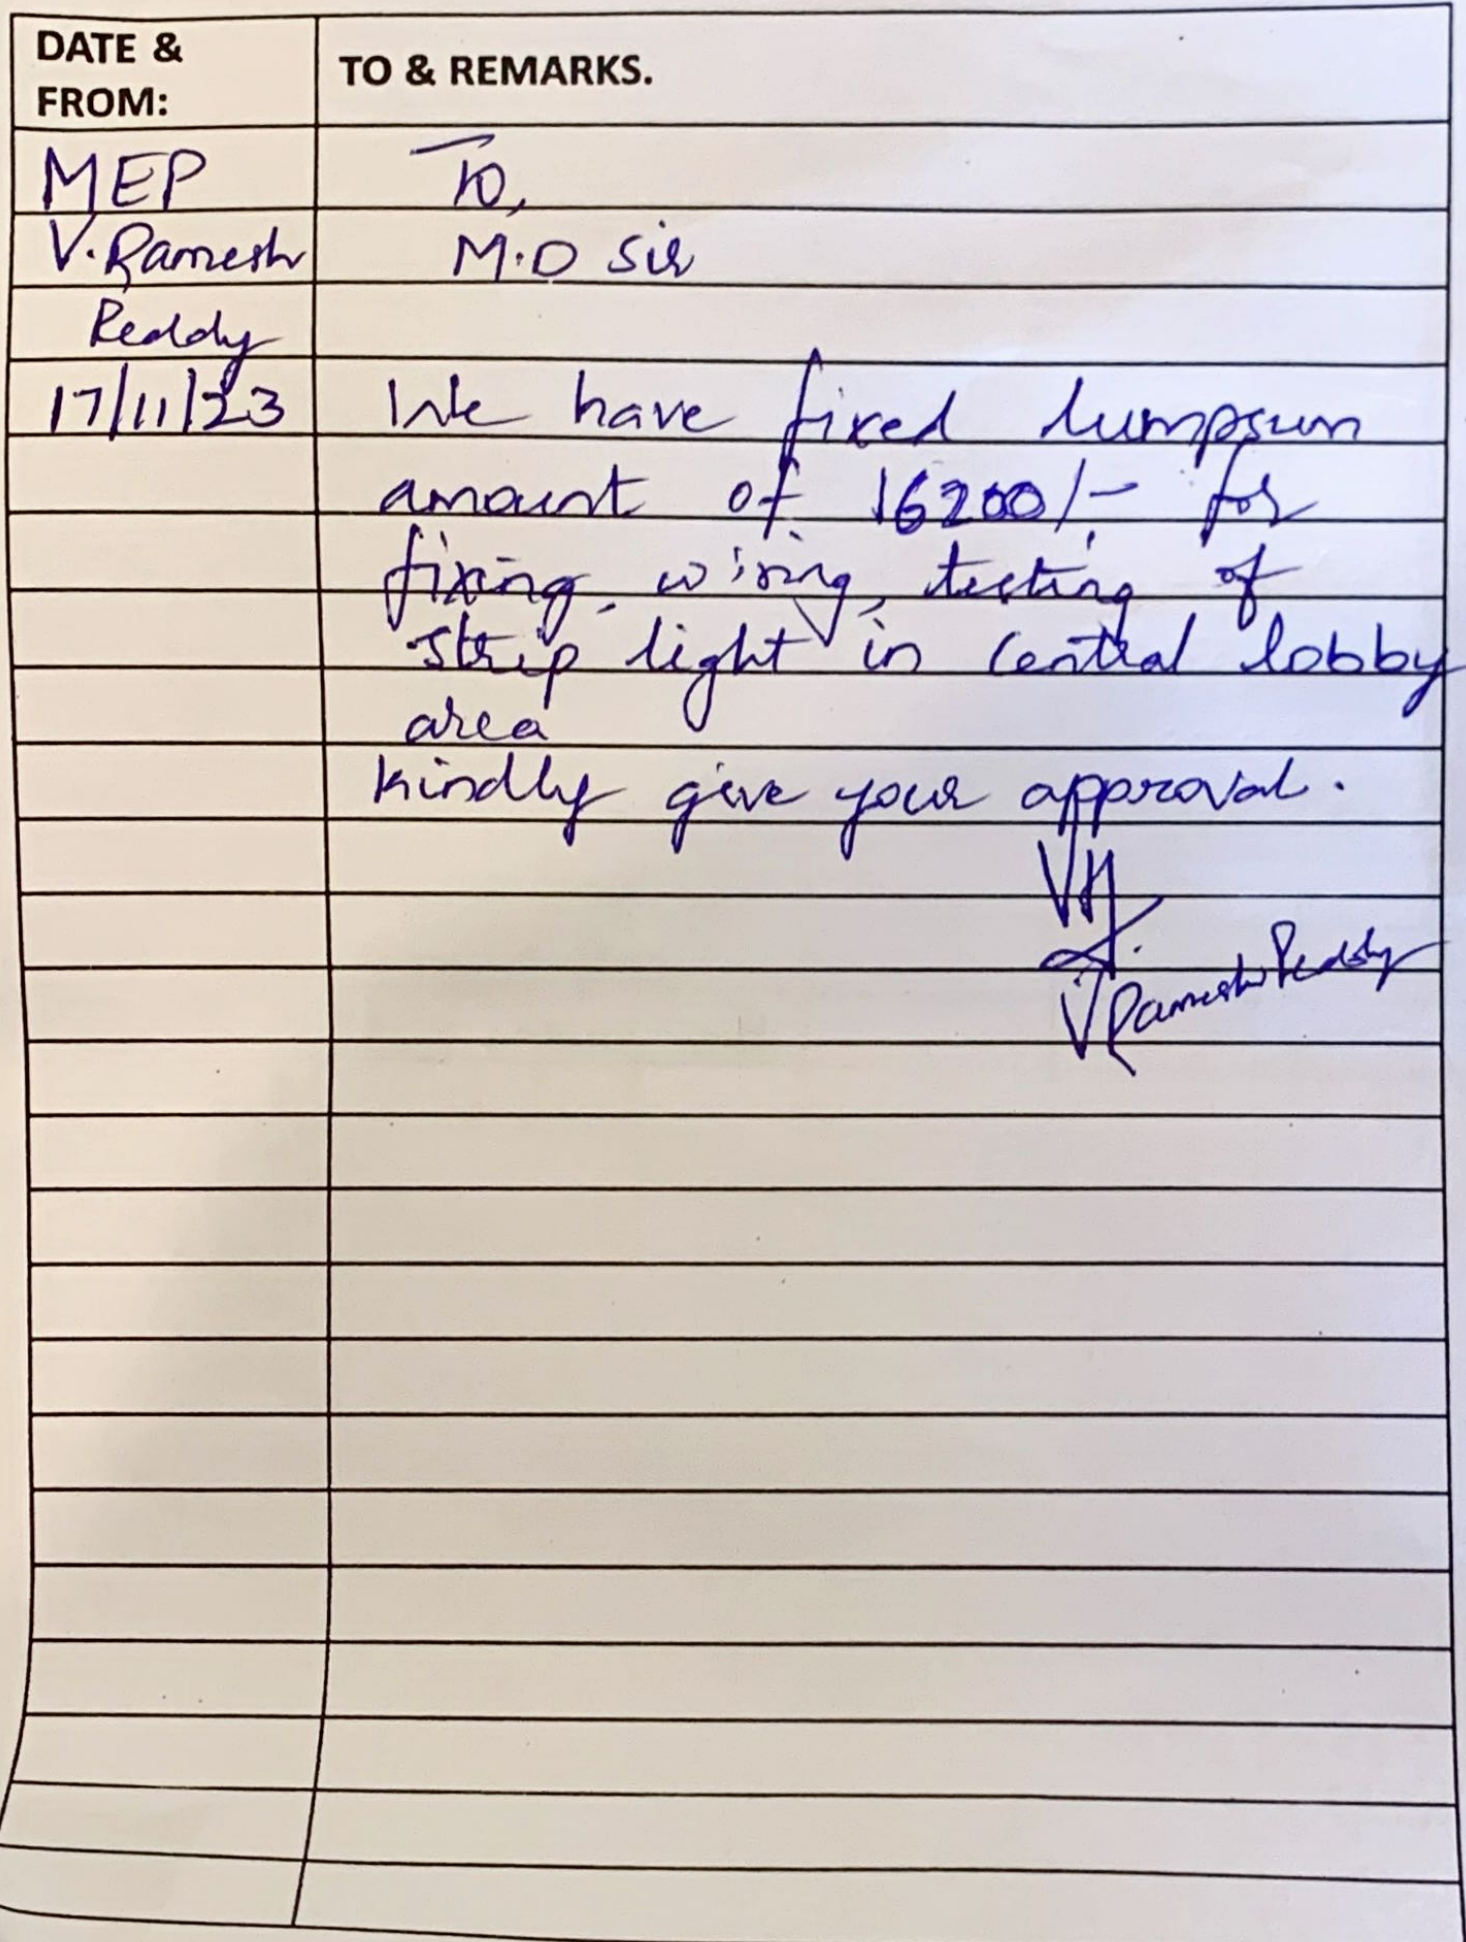 DATE &
FROM:
TO & REMARKS.
MEP
To,
V. Ramesh
M.D Sir
Reddy
17/11/23
We have fixed lumpsum
amount of 16200/- for
fixing, wiring, testing of
strip light in central lobby
area
kindly give your approval.
V Ramesh Reddy